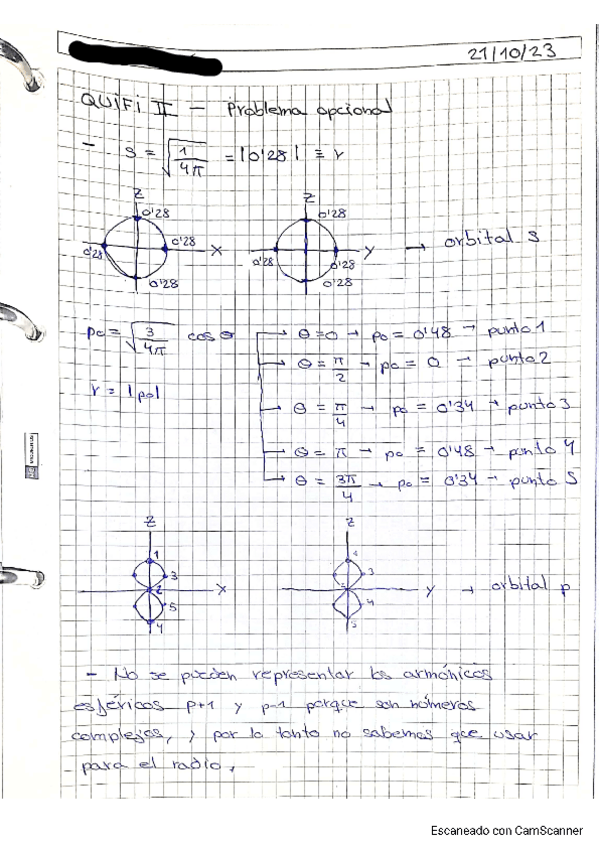 21/10/23
QUIFI II - Problema opcional
- S = √(1/4π) = |0'28| ≡ r
Z Z
0'28 0'28
0'28 0'28 X 0'28 0'28 Y → orbital s
0'28 0'28
po = √(3/4π) cos θ → θ = 0 → po = 0'48 → punto 1
→ θ = π/2 → po = 0 → punto 2
r = |po|
→ θ = π/4 → po = 0'34 → punto 3
→ θ = π → po = 0'48 → punto 4
→ θ = 3π/4 → po = 0'34 → punto 5
Z Z
1 1
3 3
2 X Y → orbital p
5 4
4 5
- No se pueden representar los armónicos
esféricos p+1 y p-1 porque son números
complejos, y por lo tanto no sabemos que usar
para el radio.
Escaneado con CamScanner